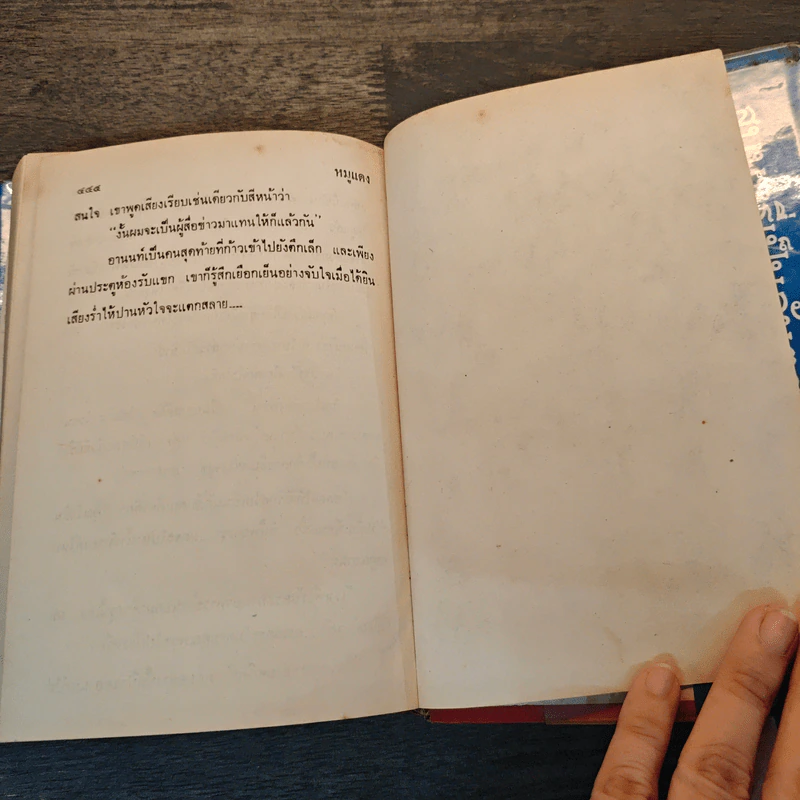 ๔๔๔
หมูแดง
สนใจ เขาพูดเสียงเรียบเช่นเดียวกับสีหน้าว่า
“งั้นผมจะเป็นผู้สื่อข่าวมาแทนให้ก็แล้วกัน”
อานนท์เป็นคนสุดท้ายที่ก้าวเข้าไปยังตึกเล็ก และเพียง
ผ่านประตูห้องรับแขก เขาก็รู้สึกเยือกเย็นอย่างจับใจเมื่อได้ยิน
เสียงร่ำไห้ปานหัวใจจะแตกสลาย....